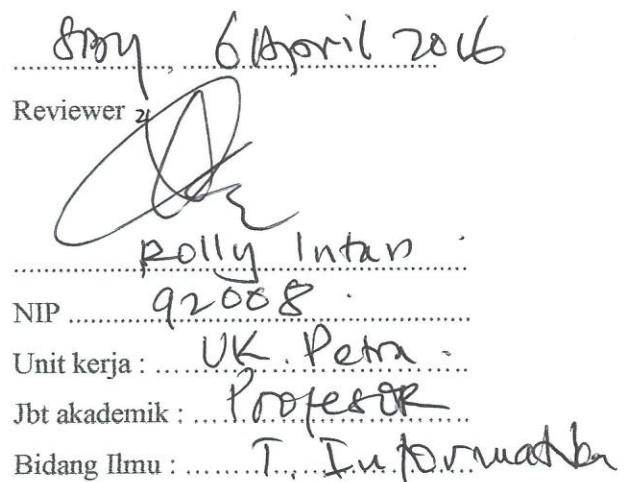 Sby, 6 April 2016
Reviewer 2
Rolly Intan
NIP 92008
Unit kerja : UK. Petra
Jbt akademik : Profesor
Bidang Ilmu : T. Informatika